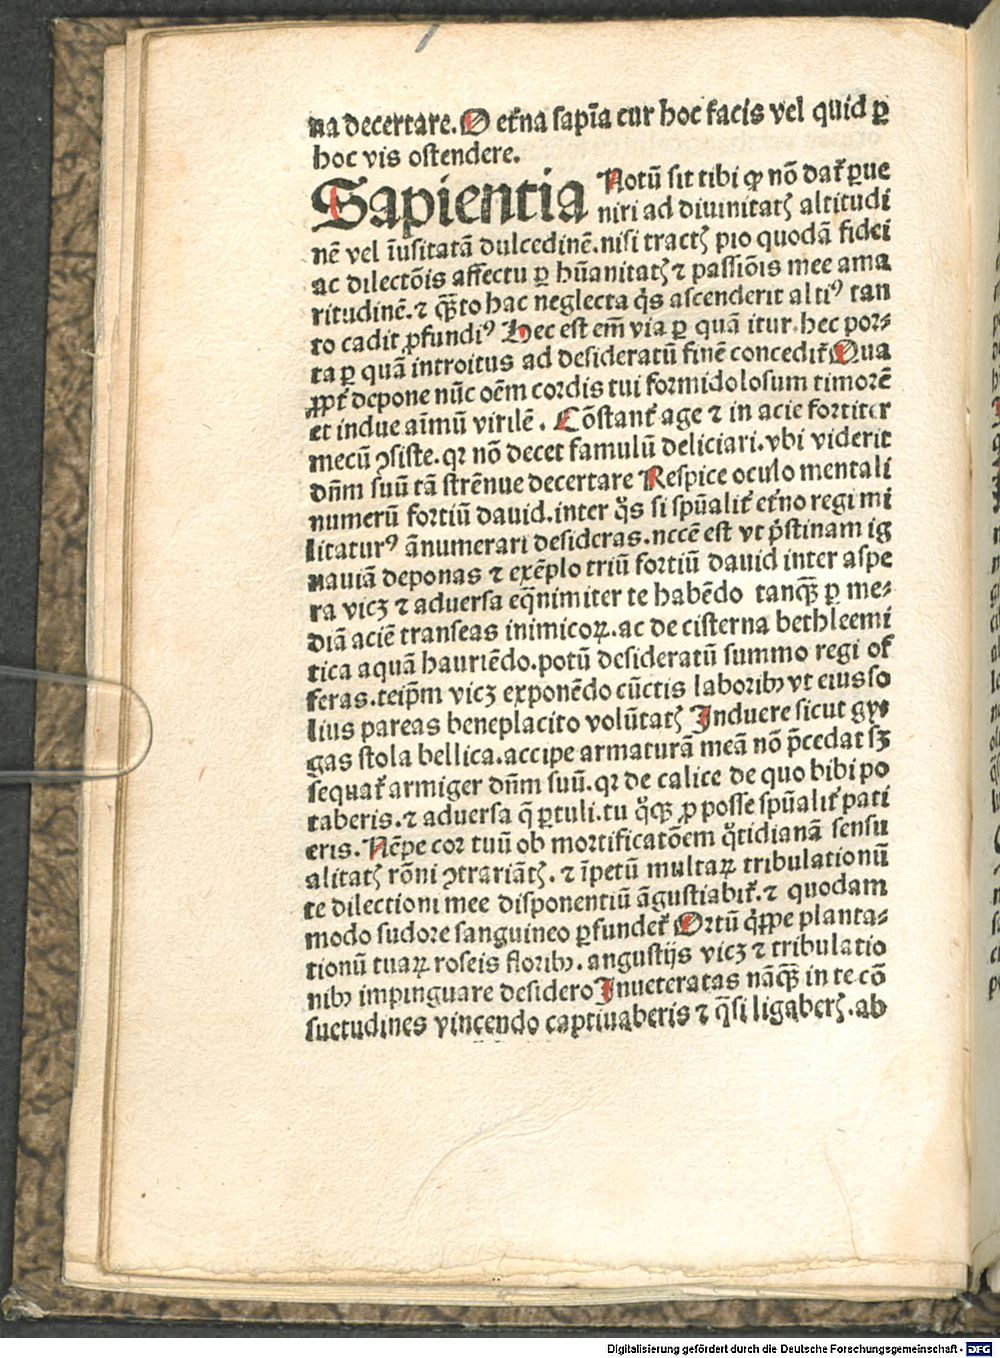 na decertare. O et̃na sapiā cur hoc facis vel quid ꝑ
hoc vis ostendere.
Sapientia Notū sit tibi ꝙ nō dat̃ ꝑue
niri ad diuinitatꝭ altitudi
nē vel īusitatā dulcedinē. nisi tractꝭ pio quodā fidei
ac dilectōis affectu ꝑ hūanitatꝭ ⁊ passiōis mee ama
ritudinē. ⁊ qͣ̄to hac neglecta qͥs ascenderit altiꝰ tan
to cadit ꝓfundiꝰ Hec est em̄ via ꝑ quā itur. hec por⸗
ta ꝑ quā introitus ad desideratū finē concedit̃ Qua
ꝓpt̃ depone nūc oēm cordis tui formidolosum timorē
et indue aīmū virilē. Cōstant̃ age ⁊ in acie fortiter
mecū ꝯsiste. qꝛ nō decet famulū deliciari. vbi viderit
dn̄m suū tā strēnue decertare Respice oculo mentali
numerū fortiū dauid. inter qͦs si spūalit̃ et̃no regi mi
litaturꝰ ānumerari desideras. nccē est vt pͥstinam ig
nauiā deponas ⁊ exēplo triū fortiū dauid inter aspe
ra vicꝫ ⁊ aduersa eq̄nimiter te habēdo tanqͣꝫ ꝑ me⸗
diā aciē transeas inimicoꝝ. ac de cisterna bethleemi
tica aquā hauriēdo. potū desideratū summo regi of
feras. teip̄m vicꝫ exponēdo cūctis laboribꝫ vt eius so
lius pareas beneplacito volūtatꝭ Induere sicut gy
gas stola bellica. accipe armaturā meā nō p̄cedat sꝫ
sequat̃ armiger dn̄m suū. qꝛ de calice de quo bibi po
taberis. ⁊ aduersa q̄ ꝑtuli. tu qͦqꝫ ꝓ posse spūalit̃ pati
eris. Nēpe cor tuū ob mortificatōem qͦtidianā sensu
alitatꝭ rōni ꝯtrariātꝭ. ⁊ īpetū multaꝝ tribulationū
te dilectioni mee disponentiū āgustiabit̃. ⁊ quodam
modo sudore sanguineo ꝑfundet̃ Ortū qͥppe planta⸗
tionū tuaꝝ roseis floribꝫ. angustijs vicꝫ ⁊ tribulatio
nibꝫ impinguare desidero Inueteratas nāqꝫ in te cō
suetudines vincendo captiuaberis ⁊ qͣsi ligaberꝭ. ab
Digitalisierung gefördert durch die Deutsche Forschungsgemeinschaft - DFG